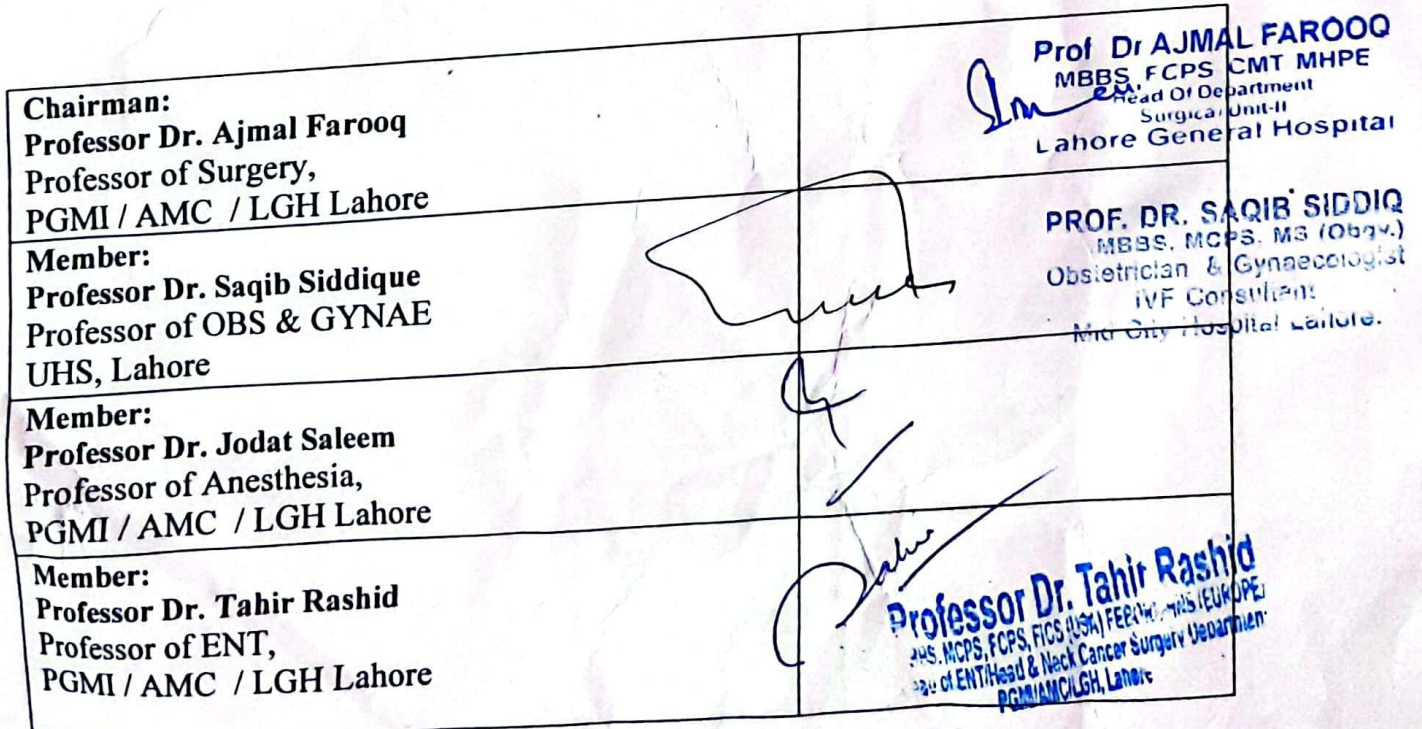 Chairman:
Professor Dr. Ajmal Farooq
Professor of Surgery,
PGMI / AMC / LGH Lahore
Prof Dr AJMAL FAROOQ
MBBS, FCPS CMT MHPE
Head Of Department
Surgical Unit-II
Lahore General Hospital
Member:
Professor Dr. Saqib Siddique
Professor of OBS & GYNAE
UHS, Lahore
PROF. DR. SAQIB SIDDIQ
MBBS, MCPS, MS (Obgy.)
Obstetrician & Gynaecologist
IVF Consultant
Mid City Hospital Lahore.
Member:
Professor Dr. Jodat Saleem
Professor of Anesthesia,
PGMI / AMC / LGH Lahore
Member:
Professor Dr. Tahir Rashid
Professor of ENT,
PGMI / AMC / LGH Lahore
Professor Dr. Tahir Rashid
MCPS, FCPS, FICS (USA) (EUROPE)
of ENT/Head & Neck Cancer Surgery Department
PGMI/AMC/LGH, Lahore